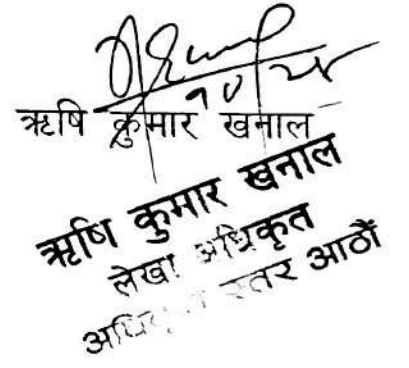 १०/२४
ऋषि कुमार खनाल
ऋषि कुमार खनाल
लेखा अधिकृत
अधिकृत स्तर आठौं